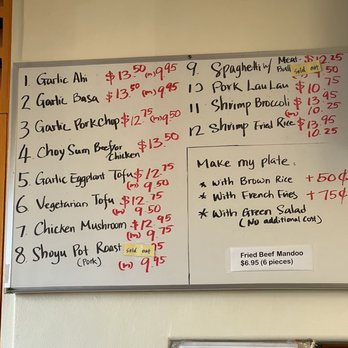 1 Garlic Ahi $13.50 (m) 9.95
2 Garlic Basa $13.50 (m) 9.95
3 Garlic Porkchop $12.75 (m) 9.50
4 Choy Sum Beef/or Chicken $13.50
5 Garlic Eggplant Tofu $12.75
(m) 9.50
6 Vegetarian Tofu $12.75
(m) 9.50
7 Chicken Mushroom $12.95
(m) 9.75
8 Shoyu Pot Roast sold out 75
(Pork) (m) 9.95
9. Spaghetti w/ Meat Ball $12.25
sold out 9.50
10 Pork Lau Lau $10.75
11 Shrimp Broccoli $13.95
(m) 10.25
12 Shrimp Fried Rice $13.95
10.25
Make my plate:
* With Brown Rice + 50¢
* With French Fries + 75¢
* With Green Salad
(No additional cost)
Fried Beef Mandoo
$6.95 (6 pieces)